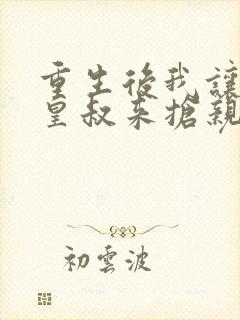 重生後我讓
皇叔来搶親
初雲波